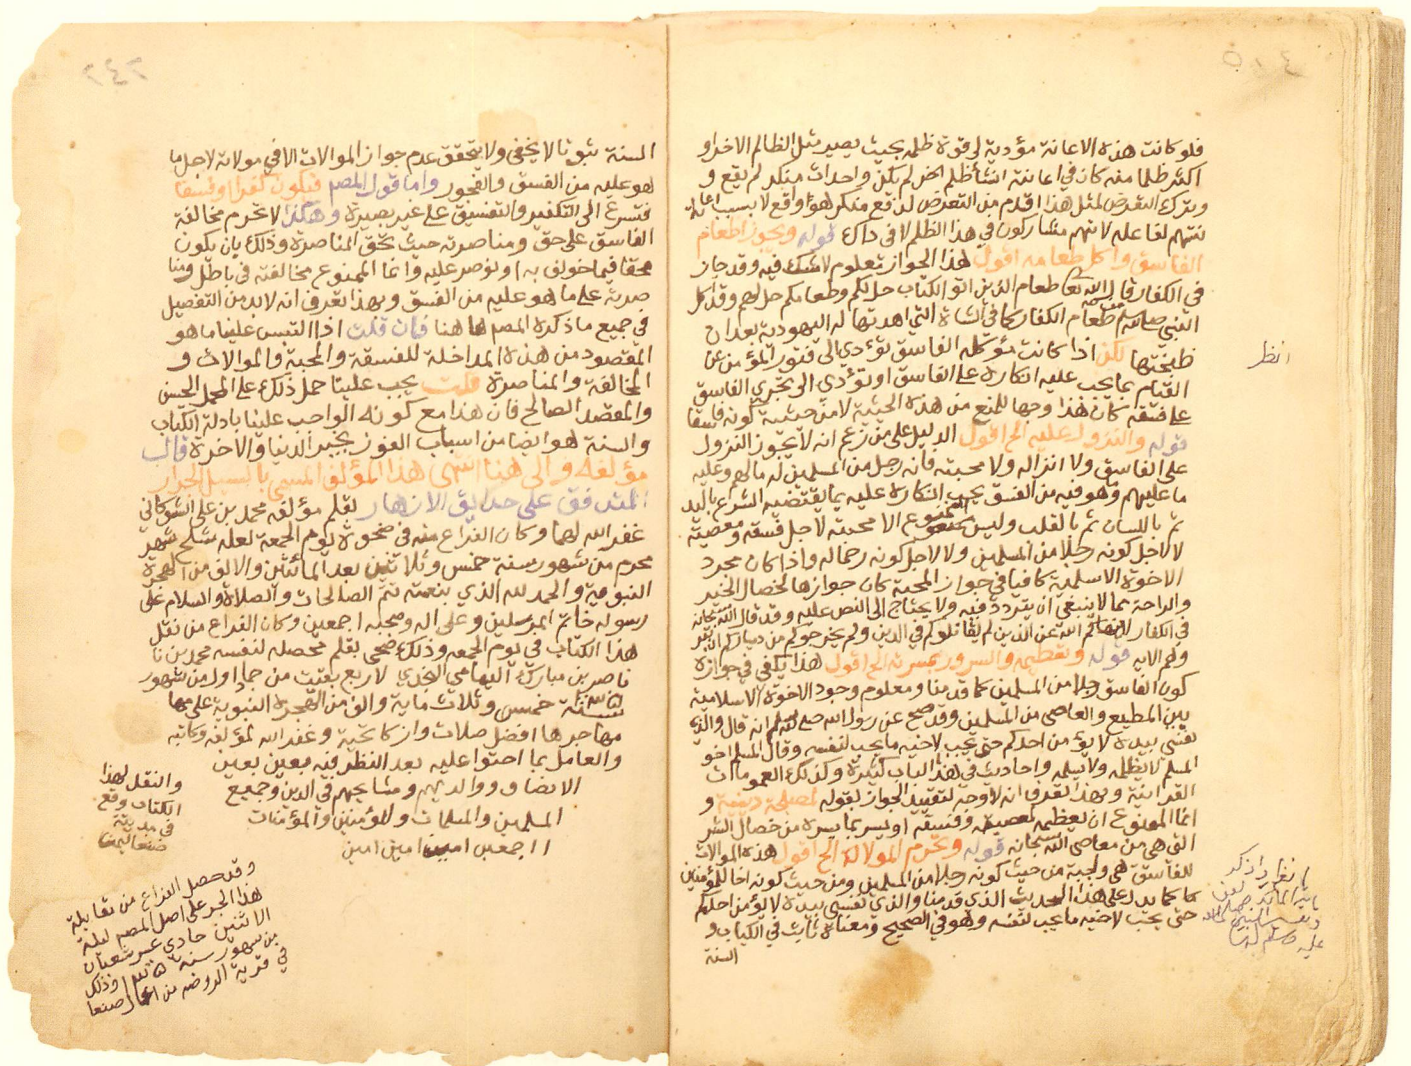 فلو كانت هذه الاعانة مؤدية الى قوة ظلمه بحيث يصير مثل الظالم الاخر او
اكثر ظلما منه كان في اعانته انشأ ظلم اخر لم يكن واحداث منكر لم يقع و
وترك التعرض لمثل هذا اقدم من التعرض لدفع منكر هو واقع لا بسبب اعانة
منهم لفاعله لانهم مشاركون في هذا الظلم لا في ذاك قوله ويجوز اطعام
الفاسق واكل طعامه اقول هذا الجواز معلوم لا شك فيه وقد جاز
في الكفار قال الله تعالى وطعام الذين اوتوا الكتاب حل لكم وطعامكم حل لهم وقد اكل
النبي صلى الله عليه وسلم طعام الكفار كما في الشاة التي اهدتها له اليهودية بعد ان
طبختها لكن اذا كانت مؤكلة الفاسق تؤدي الى فتور المؤمن عن
القيام بما يجب عليه من انكاره على الفاسق او تؤدي الى تجري الفاسق
على فسقه كان هذا وجها للمنع من هذه الحيثية لا من حيثية كونه فاسقا
قوله والنزول عليه الخ اقول الدليل على من زعم انه لا يجوز النزول
على الفاسق ولا انزاله ولا محبته فانه رجل من المسلمين له ما لهم وعليه
ما عليهم وهو فيه من الفسق يجب انكاره عليه بما يقتضيه الشرع باليد
ثم باللسان ثم بالقلب وليس الممنوع الا محبته لاجل فسقه ومعصيته
لا لاجل كونه رجلا من المسلمين ولا لاجل كونه رحما له واذا كان مجرد
الاخوة الاسلامية كافيا في جواز المحبة كان جوازها لخصال الخير
والراحة مما لا ينبغي ان يتردد فيه ولا يحتاج الى النص عليه وقد قال الله سبحانه
في الكفار لا ينهاكم الله عن الذين لم يقاتلوكم في الدين ولم يخرجوكم من دياركم ان تبر
وهم الاية قوله وتعظيمه والسرور بمسرته الخ اقول هذا يكفي في جوازه
كون الفاسق رجلا من المسلمين كما قدمنا ومعلوم وجود الاخوة الاسلامية
بين المطيع والعاصي من المسلمين وقد صح عن رسول الله صلى الله عليه وسلم انه قال والذي
نفسي بيده لا يؤمن احدكم حتى يحب لاخيه ما يحب لنفسه وقال المسلم اخو
المسلم لا يظلمه ولا يسلمه واحاديث في هذا الباب كثيرة وكذلك العمومات
القرانية وبهذا تعرف انه لا وجه لتقييد الجواز بقوله لمصلحة دينية و
انما الممنوع ان يعظمه لمعصيته وفسقه او يسر بما يسره من خصال الشر
التي هي من معاصي الله سبحانه قوله وتحرم الموالاة الخ اقول هذه الموالات
للفاسق هي واجبة من حيث كونه رجلا من المسلمين ومن حيث كونه اخا للمؤمنين
كما يدل على هذا الحديث الذي قدمنا والذي نفسي بيده لا يؤمن احدكم
حتى يحب لاخيه ما يحب لنفسه وهو في الصحيح ومعناه ثابت في الكتاب و
السنة
انظر
السنة ثبوتا لا يخفى ولا يتحقق عدم جواز الموالات الا في موالاته لاجل ما
هو عليه من الفسق والفجور واما قول المصنف فيكون كفرا وفسقا
فتسرع الى التكفير والتفسيق على غير بصيرة وهكذا لا تحرم مخالفة
الفاسق على حق ومناصرته حيث تحق المناصرة وذلك بان يكون
محقا فيما خولف به او نوصر عليه وانما الممنوع مخالفته في باطل ومنا
صرته على ما هو عليه من الفسق وبهذا تعرف انه لا بد من التفصيل
في جميع ما ذكره المصنف هاهنا فان قلت اذا التبس علينا ما هو
المقصود من هذه المداخلة للفسقة والمحبة والموالات و
المخالفة والمناصرة قلت يجب علينا حمل ذلك على المحمل الحسن
والمقصد الصالح فان هذا مع كونه الواجب علينا بادلة الكتاب
والسنة هو ايضا من اسباب الفوز بخير الدنيا والاخرة قال
مؤلفه والى هنا انتهى هذا المؤلف المسمى بالسيل الجرار
المتدفق على حدايق الازهار بقلم مؤلفه محمد بن علي الشوكاني
غفر الله لهما وكان الفراغ منه في ضحوة يوم الجمعة لعله سلخ شهر
محرم من شهور سنة خمس وثلاثين بعد المائتين والالف من الهجرة
النبوية والحمد لله الذي بنعمته تتم الصالحات والصلاة والسلام على
رسوله خاتم المرسلين وعلى اله وصحبه اجمعين وكان الفراغ من نقل
هذا الكتاب في يوم الجمعة وذلك ضحى بقلم محصله لنفسه محمد بن نا
ناصر بن مبارك التهامي النجدي لاربع بقيت من جماد اول من شهور
سنة خمس وثلاث ماية والف من الهجرة النبوية على مها
مهاجرها افضل صلات وازكا تحية وغفر الله لمؤلفه وكاتبه
والعامل بما احتوا عليه بعد النظر فيه بعين بعين
الانصاف ووالديهم ومشايخهم في الدين وجميع
المسلمين والمسلمات والمؤمنين والمؤمنات
اجمعين امين امين امين
والنقل لهذا
الكتاب وقع
في مدينة
صنعا اليمن
وقد حصل الفراغ من مقابلة
هذا الجزء على اصل المصنف ليلة
الاثنين حادي عشر شعبان
من شهور سنة ١٣٠٥ وذلك
في قرية الروضه من اعمال صنعا